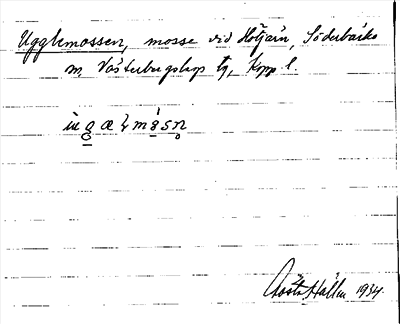 Ugglemossen, mosse vid Hötjärn, Söderbärke
sn, Västerbergslags tg, Kopp. l.
Gösta Hallén 1934.